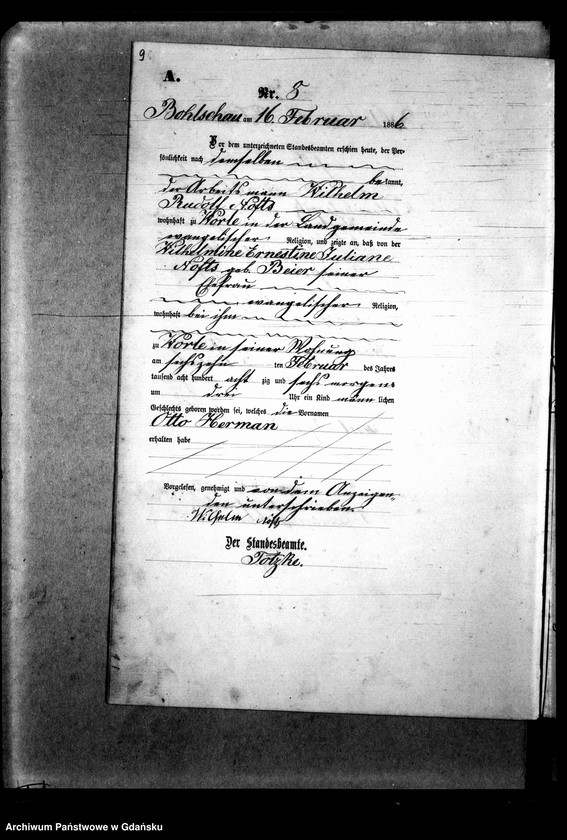 9
A.
Nr. 8
Bohlschau am 16. Februar 1886
Vor dem unterzeichneten Standesbeamten erschien heute, der Per-
sönlichkeit nach demselben
bekannt,
der Arbeitsmann Wilhelm
Rudolf Nofts
wohnhaft zu Worle in der Landgemeinde
evangelischer Religion, und zeigte an, daß von der
Wilhelmine Ernestine Juliane
Nofts geb. Beier seiner
Ehefrau
evangelischer Religion,
wohnhaft bei ihm
zu Worle in seiner Wohnung
am sechszehn ten Februar des Jahres
tausend acht hundert acht zig und sechs morgens
um drei Uhr ein Kind männ lichen
Geschlechts geboren worden sei, welches die Vornamen
Otto Herman
erhalten habe
Vorgelesen, genehmigt und von dem Anzeigen
den unterschrieben
Wilhelm Nofts
Der Standesbeamte.
Totzke.
Archiwum Państwowe w Gdańsku